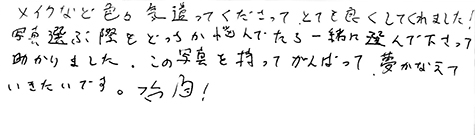 メイクなど色々気遣ってくださって、とても良くしてくれました!
写真選ぶ際もどっちか悩んでたら一緒に選んで下さって
助かりました。この写真を持ってがんばって、夢かなえて
いきたいです。合格!